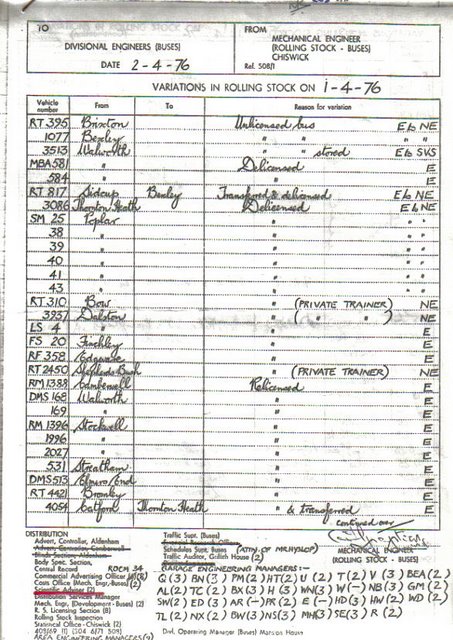 TO
FROM
DIVISIONAL ENGINEERS (BUSES)
MECHANICAL ENGINEER
(ROLLING STOCK - BUSES)
CHISWICK
DATE 2-4-76
Ref. 508/1
VARIATIONS IN ROLLING STOCK ON 1-4-76
Vehicle number From To Reason for variation
RT 395 Brixton Unlicensed bus E to NE
1077 Bexley " " " "
3513 Walworth " " stored E to SVS
MBA 581 " Delicensed E
584 " " E
RT 817 Sidcup Bexley Transferred & delicensed E to NE
3086 Thornton Heath Delicensed E to NE
SM 25 Poplar " " "
38 " " " "
39 " " " "
40 " " " "
41 " " " "
43 " " " "
RT 310 Bow " (PRIVATE TRAINER) NE
3937 Dalston " ( " " ) NE
LS 4 " " E
FS 20 Finchley " E
RF 358 Edgware " E
RT 2450 Shepherds Bush " (PRIVATE TRAINER) NE
RM 1388 Camberwell Relicensed E
DMS 168 Walworth " E
169 " " E
RM 1396 Stockwell " E
1996 " " E
2027 " " E
531 Streatham " E
DMS 513 Elmers End " E
RT 4421 Bromley " E
4054 Catford Thornton Heath " & transferred E
continued over
DISTRIBUTION
Advert, Controller, Aldenham
Body Spec. Section,
Central Record ROOM 34
Commercial Advertising Officer (8)
Costs Office (Mech. Engr. Buses) (2)
Scientific Adviser (2)
Distribution Services Manager
Mech. Engr. (Development - Buses) (2)
R. S. Licensing Section (8)
Rolling Stock Inspection
Statistical Office - Chiswick (2)
Traffic Supt. (Buses)
Schedules Supt. Buses (ATTN. OF MR. HYSLOP)
Traffic Auditor, Griffith House (2)
MECHANICAL ENGINEER
(ROLLING STOCK - BUSES)
GARAGE ENGINEERING MANAGERS :-
Q (3) BN (3) PM (2) HT (2) U (2) T (2) V (3) BEA (2)
AL (2) TC (2) BX (3) H (3) WN (3) W (-) NB (3) GM (2)
SW (2) ED (3) AR (-) PR (2) E (-) HD (3) HW (2) WD (2)
TL (2) NX (2) BW (3) NS (3) MH (3) SE (3) R (2)
Divl. Operating Manager (Buses) Manson House
AREA ENGINEERING MANAGERS